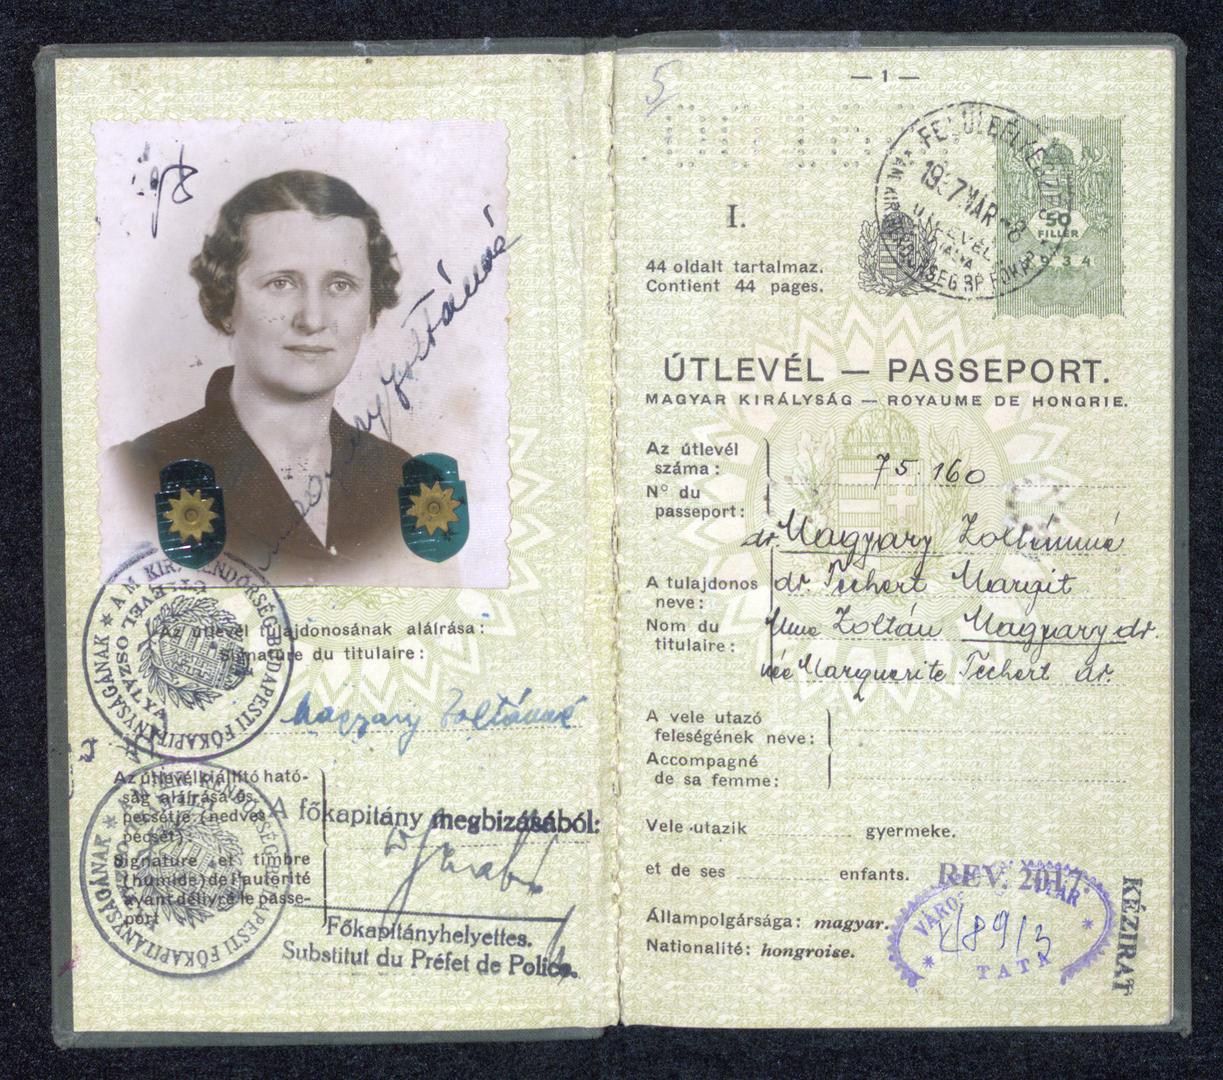 Magyary Zoltánné
A M. KIR. RENDŐRSÉG BUDAPESTI FŐKAPITÁNYSÁGÁNAK
ÚTLEVÉL OSZTÁLYA
Az útlevél tulajdonosának aláírása:
Signature du titulaire:
Magyary Zoltánné
Az útlevélkiállító ható-
ság aláírása és
pecsétje (nedves
pecsét)
Signature et timbre
(humide) de l'autorité
ayant délivré le passe-
port
A főkapitány megbizásából:
Főkapitányhelyettes.
Substitut du Préfet de Police.
5
— 1 —
I.
44 oldalt tartalmaz.
Contient 44 pages.
1937 MÁR
50
FILLÉR
1934
ÚTLEVÉL — PASSEPORT.
MAGYAR KIRÁLYSÁG — ROYAUME DE HONGRIE.
Az útlevél
száma:
75.160
No du
passeport:
dr. Magyary Zoltánné
A tulajdonos
neve:
dr. Techert Margit
Nom du
titulaire:
Mme Zoltán Magyary dr.
née Marguerite Techert dr.
A vele utazó
feleségének neve:
Accompagné
de sa femme:
Vele utazik gyermeke.
et de ses enfants.
Állampolgársága: magyar.
Nationalité: hongroise.
REV. 2017
VÁROSI
TATA
KÉZIRAT